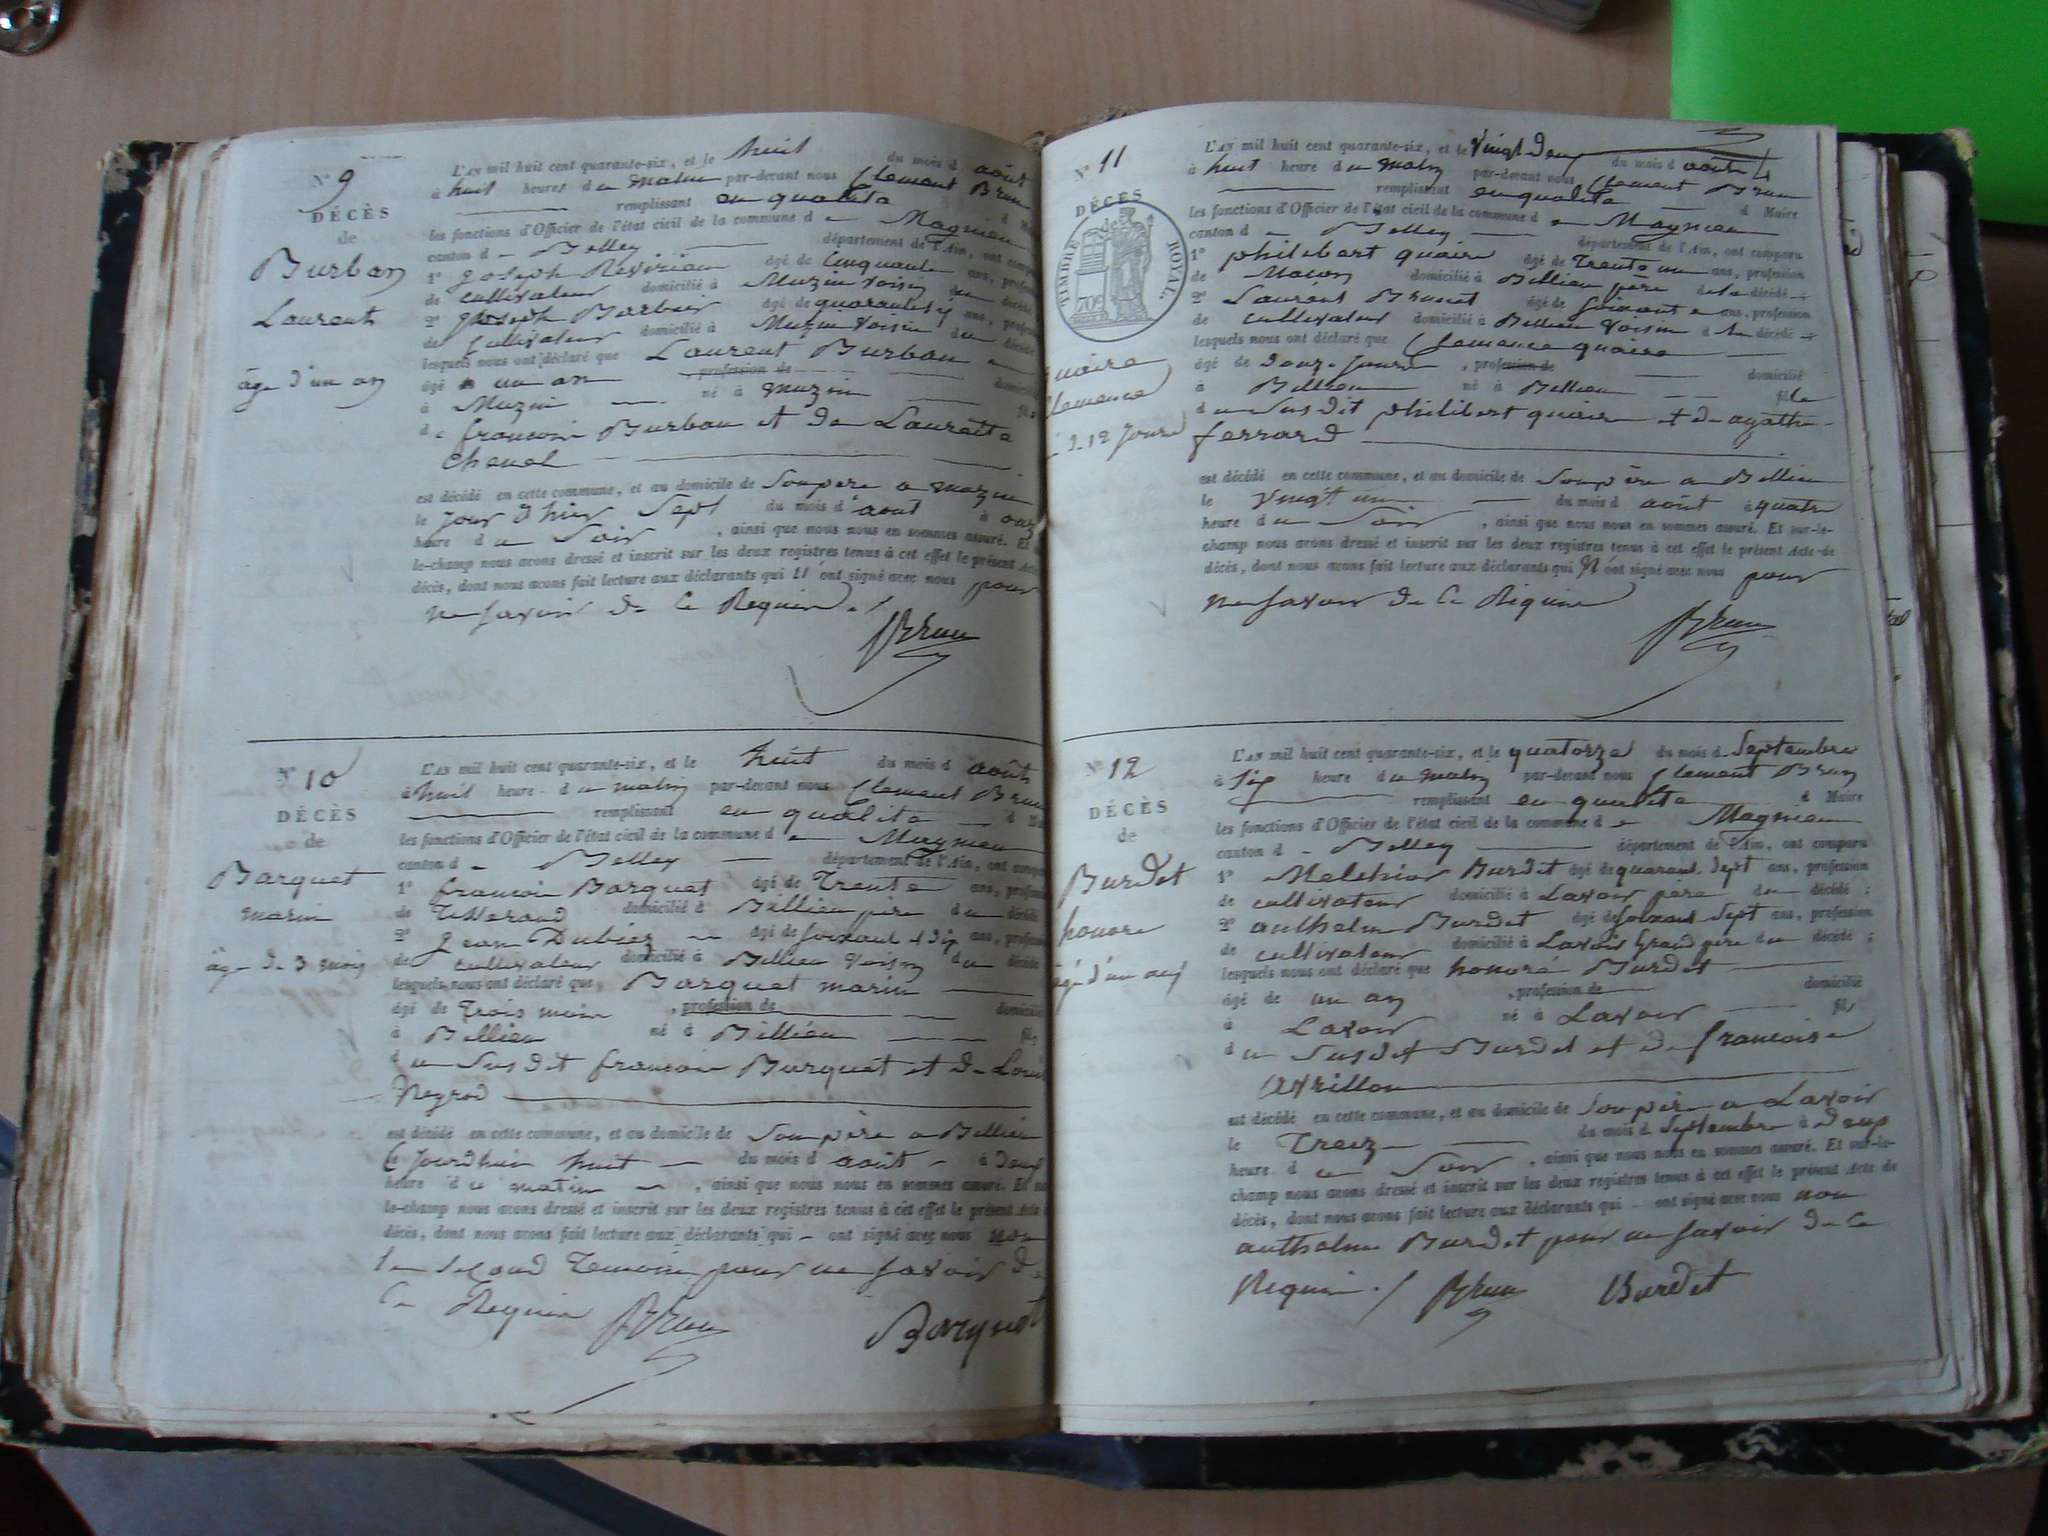 N° 9
DÉCÈS
de
Burban
Laurent
âge d'un an
L'AN mil huit cent quarante-six, et le huit du mois d août
à huit heures du matin par-devant nous Clement Brun
remplissant en qualité d
les fonctions d'Officier de l'état civil de la commune d e Magnieu
canton d e Belley département de l'Ain, ont
1° joseph Revirian âgé de Cinquante ans,
de cultivateur domicilié à Muzin voisin du décédé
2° joseph Barbier âgé de ans,
de Cultivateur domicilié à Muzin Voisin du décédé
lesquels nous ont déclaré que Laurent Burban
âgé un an , profession de
à Muzin né à muzin
d e francois Burban et de Laurette
Chenel
est décédé en cette commune, et au domicile de Son père a muzin
le Jour d'hier Sept du mois d'août à
heure d u Soir , ainsi que nous nous en sommes assuré. Et
le-champ nous avons dressé et inscrit sur les deux registres tenus à cet effet le présent Acte
décès, dont nous avons fait lecture aux déclarants qui n'ont signé avec nous pour
ne Savoir de Ce Requis
Brun
N° 10
DÉCÈS
de
Barquet
marin
âge de 3 mois
L'AN mil huit cent quarante-six, et le huit du mois d août
à huit heure du matin par-devant nous Clement Brun
remplissant en qualité d
les fonctions d'Officier de l'état civil de la commune d e Magnieu
canton d e Belley département de l'Ain, ont
1° francois Barquet âgé de Trente ans,
de Tisserand domicilié à Billieu père du décédé
2° jean Dubiez âgé de soixante dix ans,
de cultivateur domicilié à Billieu Voisin du décédé
lesquels nous ont déclaré que Barquet marin
âgé de Trois mois , profession de
à Billieu né à Billieu fils
d u Susdit francois Barquet et de
Neyrod
est décédé en cette commune, et au domicile de Son père a Billieu
Ce Jourdhui huit du mois d août à deux
heure du matin , ainsi que nous nous en sommes assuré. Et
le-champ nous avons dressé et inscrit sur les deux registres tenus à cet effet le présent Acte
décès, dont nous avons fait lecture aux déclarants qui ont signé avec nous non
le Second Temoin pour ne Savoir de
Ce Requis Brun Barquet
N° 11
DÉCÈS
TIMBRE ROYAL.
70c
Clemence
12 Jours
L'AN mil huit cent quarante-six, et le vingt deux du mois d août
à huit heure du matin par-devant nous Clement Brun
remplissant en qualité d Maire
les fonctions d'Officier de l'état civil de la commune d e Magnieu
canton d e Belley département de l'Ain, ont comparu
1° philibert quaire âgé de Trente un ans, profession
de Macon domicilié à Billieu père de la décédé
2° Laurent Brunet âgé de Soixante ans, profession
de cultivateur domicilié à Billieu Voisin d la décédé
lesquels nous ont déclaré que Clemence quaire
âgé de Douze Jours , profession de domicilié
à Billieu né à Billieu fille
d u Susdit philibert quaire et de agathe
ferrard
est décédé en cette commune, et au domicile de Son père a Billieu
le vingt un du mois d août à quatre
heure d u Soir , ainsi que nous nous en sommes assuré. Et sur-le-
champ nous avons dressé et inscrit sur les deux registres tenus à cet effet le présent Acte de
décès, dont nous avons fait lecture aux déclarants qui N'ont signé avec nous pour
ne Savoir de Ce Requis
Brun
N° 12
DÉCÈS
de
Burdet
honore
âgé d'un an
L'AN mil huit cent quarante-six, et le quatorze du mois d Septembre
à Six heure du matin par-devant nous Clement Brun
remplissant en qualité d Maire
les fonctions d'Officier de l'état civil de la commune d e Magnieu
canton d e Belley département de l'Ain, ont comparu
1° Melchior Burdet âgé de quarante Sept ans, profession
de cultivateur domicilié à Lavoir père du décédé ;
2° anthelme Burdet âgé de Soixante Sept ans, profession
de cultivateur domicilié à Lavoir Grand père du décédé ;
lesquels nous ont déclaré que honoré Burdet
âgé de un an , profession de domicilié
à Lavoir né à Lavoir fils
d u Susdit Burdet et de francoise
avrillon
est décédé en cette commune, et au domicile de Son père a Lavoir
le Treize du mois d Septembre à deux
heure d u Soir , ainsi que nous nous en sommes assuré. Et sur-le-
champ nous avons dressé et inscrit sur les deux registres tenus à cet effet le présent Acte de
décès, dont nous avons fait lecture aux déclarants qui ont signé avec nous non
anthelme Burdet pour ne Savoir de Ce
Requis Brun Burdet